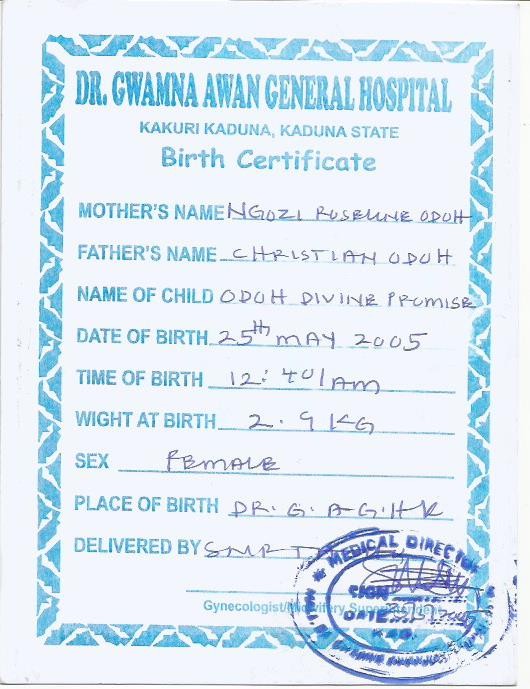 DR. GWAMNA AWAN GENERAL HOSPITAL
KAKURI KADUNA, KADUNA STATE
Birth Certificate
MOTHER'S NAME NGOZI ROSELINE ODOH
FATHER'S NAME CHRISTIAN ODOH
NAME OF CHILD ODOH DIVINE PROMISE
DATE OF BIRTH 25th MAY 2005
TIME OF BIRTH 12:40/AM
WIGHT AT BIRTH 2.9 KG
SEX FEMALE
PLACE OF BIRTH DR. G. A G. H K
DELIVERED BY
MEDICAL DIRECTOR
SIGN
DATE
Gynecologist/Midwifery